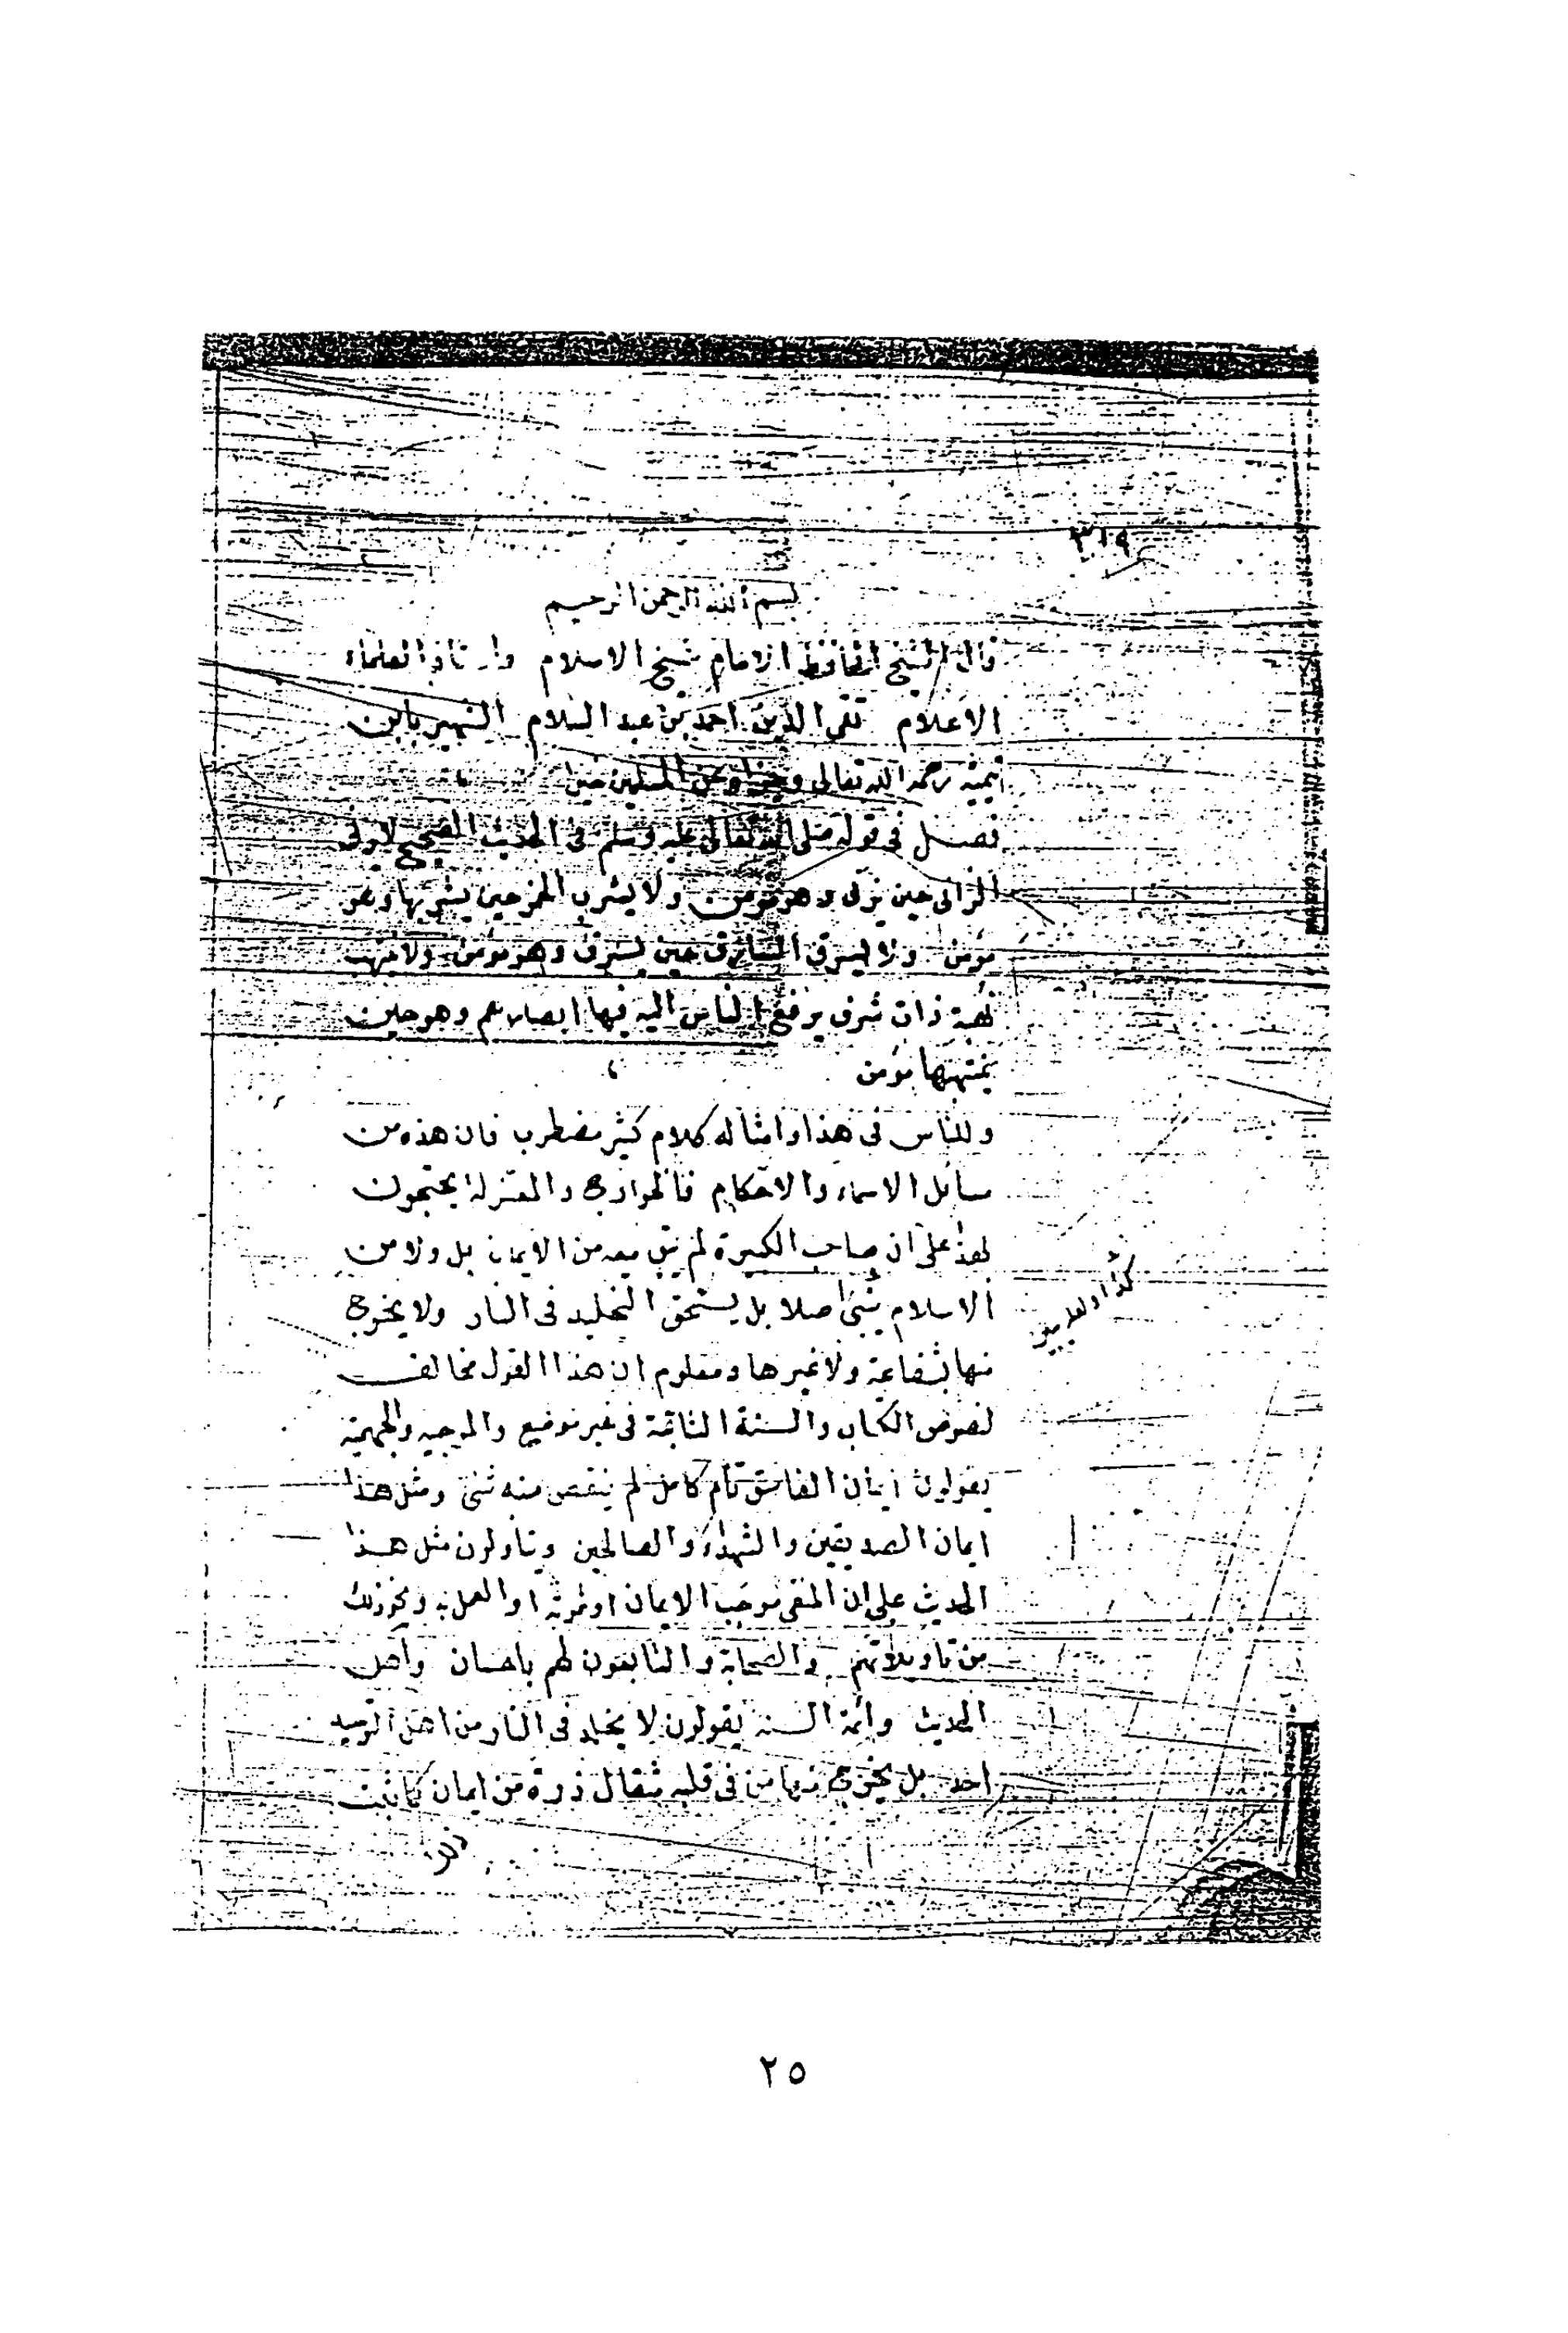 ٣١٩
بسم الله الرحمن الرحيم
قال الشيخ الحافظ الامام شيخ الاسلام واستاذ العلماء
الاعلام تقي الدين احمد بن عبد السلام الشهير بابن
تيمية رحمه الله تعالى وجزاه عن المسلمين خيرا
فصل في قوله صلى الله تعالى عليه وسلم في الحديث الصحيح لا يزني
الزاني حين يزني وهو مومن ولا يشرب الخمر حين يشربها وهو
مؤمن ولا يسرق السارق حين يسرق وهو مؤمن ولا ينهب
نهبة ذات شرف يرفع الناس اليه فيها ابصارهم وهو حين
ينتهبها مؤمن
وللناس في هذا وامثاله كلام كثير مضطرب فان هذه من
مسائل الاسماء والاحكام فالخوارج والمعتزلة يحتجون
بهذا على ان صاحب الكبيرة لم يبق معه من الايمان بل ولا من
الاسلام شيئ اصلا بل يستحق التخليد في النار ولا يخرج
منها بشفاعة ولا غيرها ومعلوم ان هذا القول مخالف
لنصوص الكتاب والسنة الثابتة في غير موضع والمرجيه والجهمية
يقولون ايمان الفاسق تام كامل لم ينقص منه شئ ومثل هذا
ايمان الصديقين والشهداء والصالحين ويتاولون مثل هذا
الحديث على ان المنفي موجب الايمان او ثمرته او العمل به ونحو ذلك
من تاويلاتهم والصحابة والتابعون لهم باحسان واهل
الحديث وائمة السنه يقولون لا يخلد في النار من اهل التوحيد
احد بل يخرج منها من في قلبه مثقال ذرة من ايمان كما ثبت
٢٥